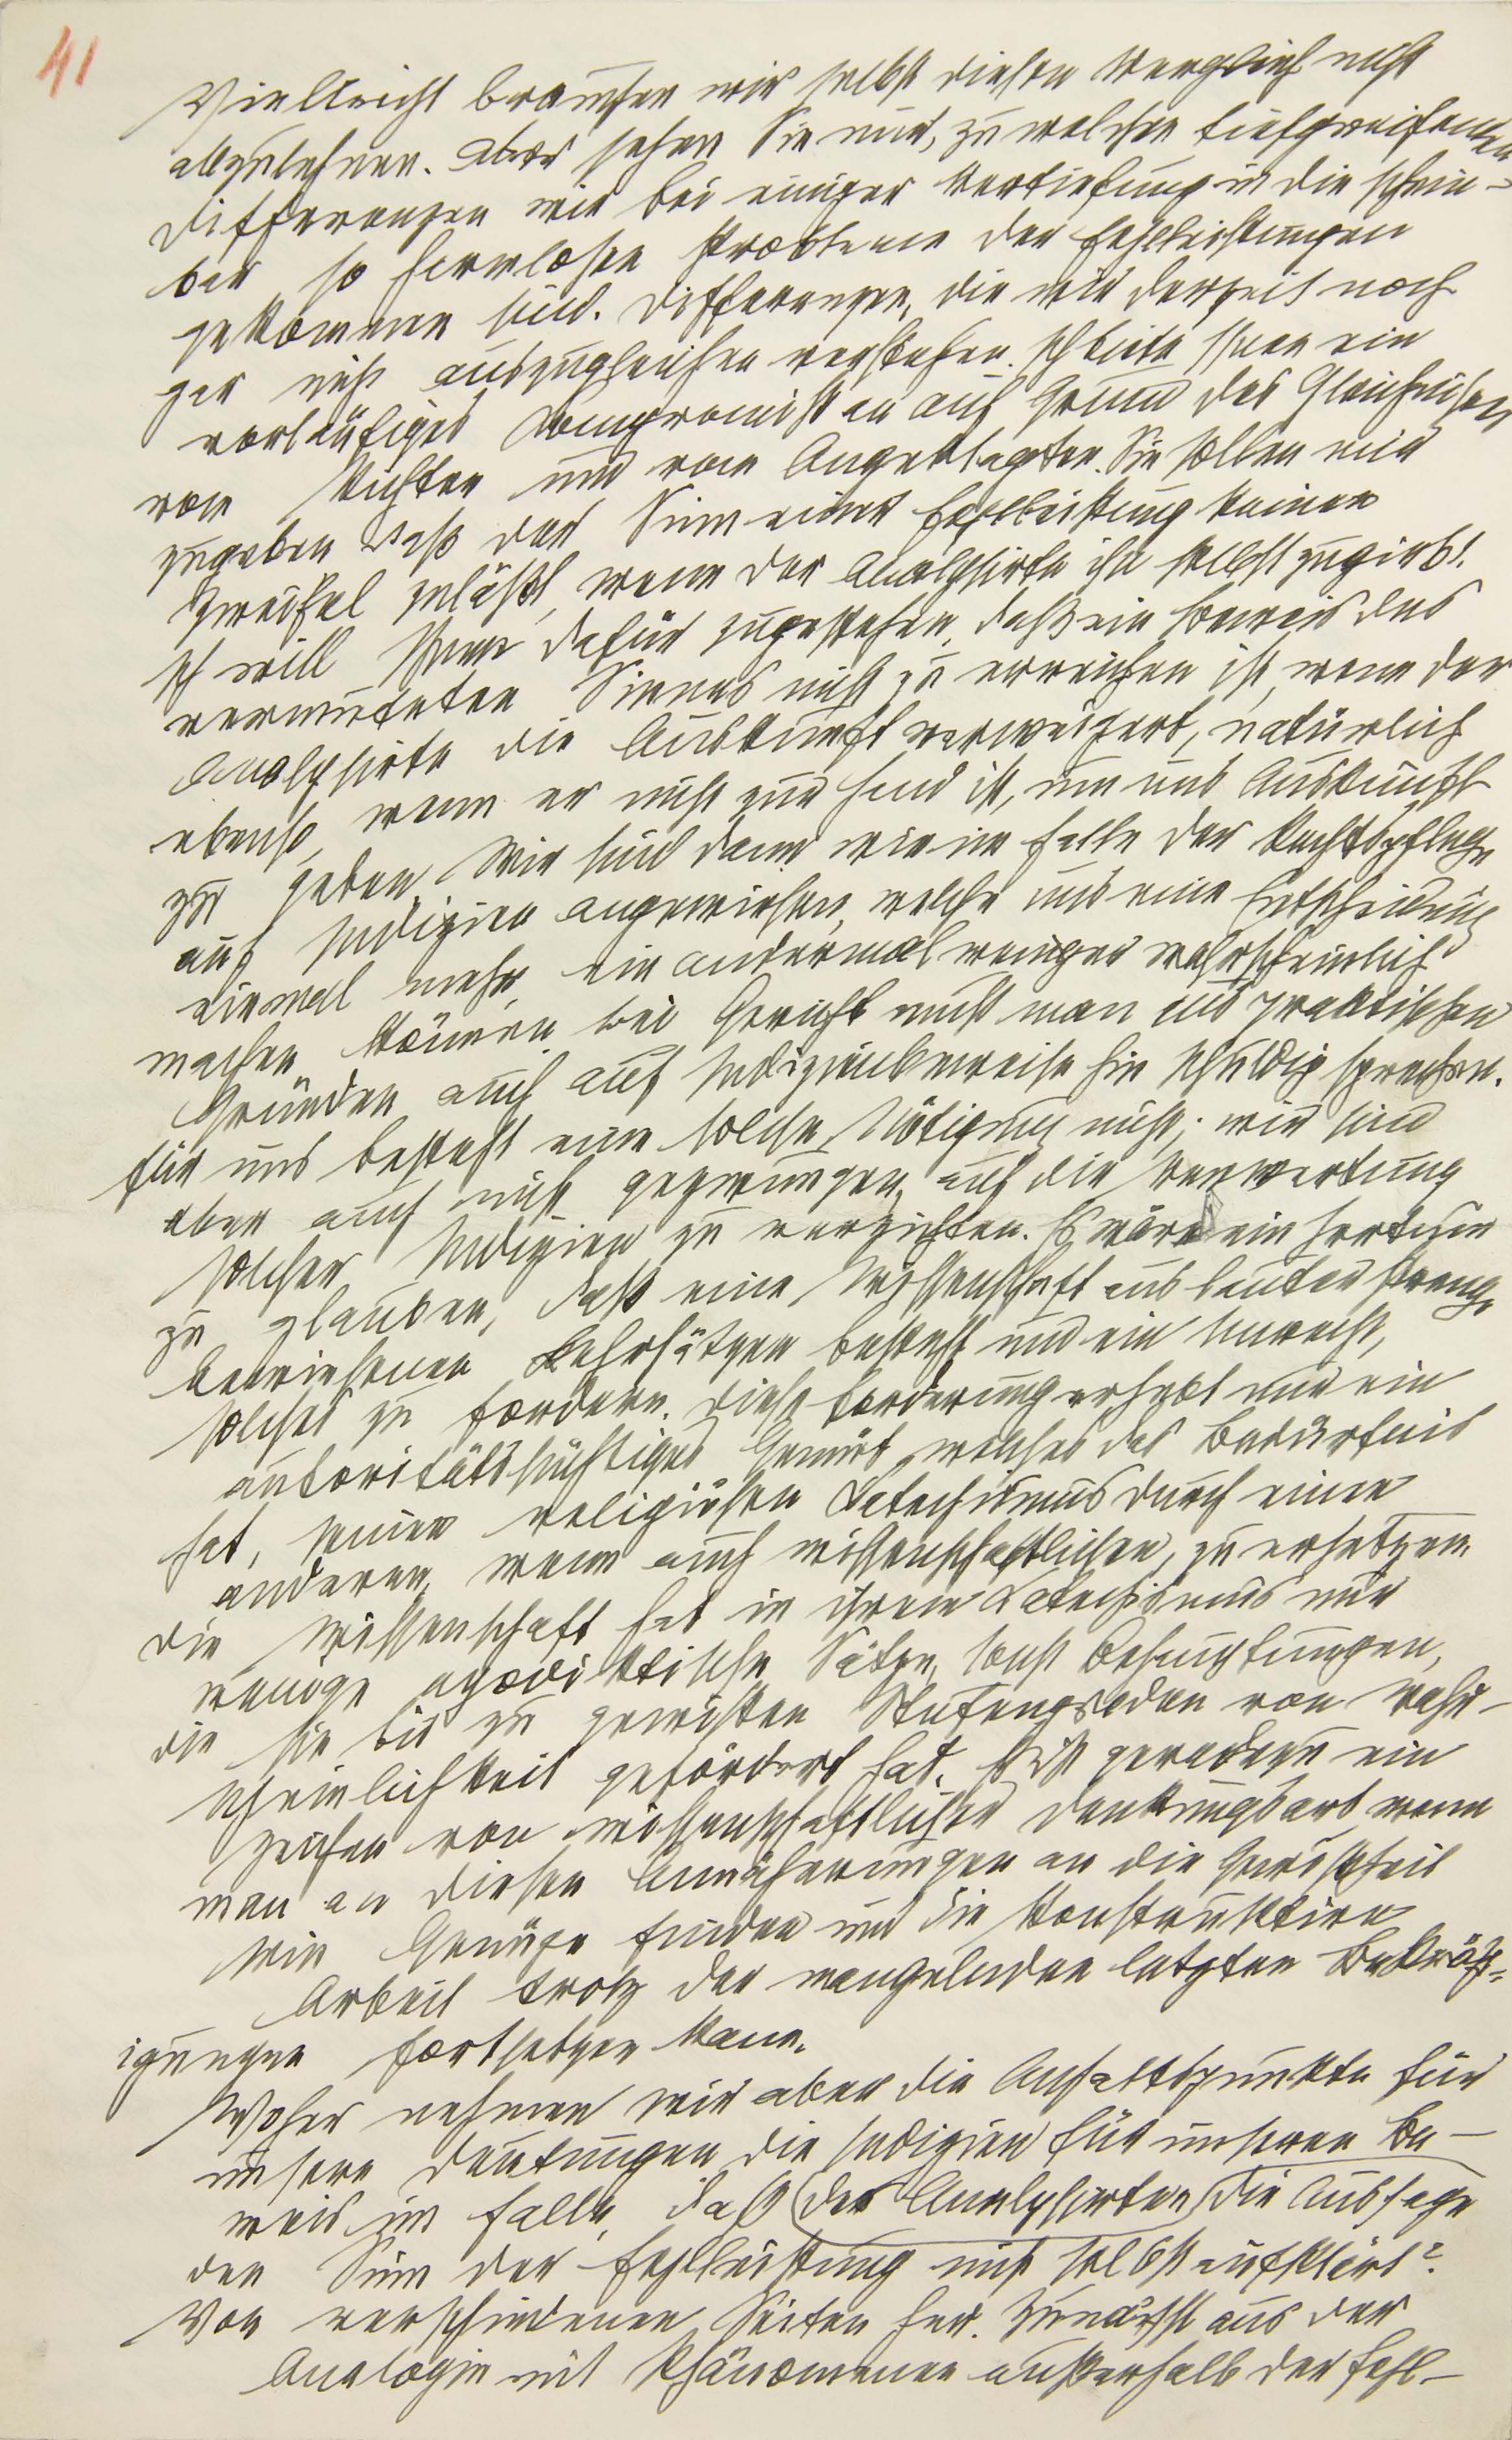 41
Vielleicht brauchen wir selbst diesen Vergleich nicht
abzulehnen. Aber sehen Sie nur, zu welchen tiefgreifenden
Differenzen wir bei einiger Vertiefung in die schein-
bar so harmlosen Probleme der Fehlleistungen
gekommen sind. Differenzen, die wir derzeit noch
gar nicht auszugleichen verstehen. Ich biete Ihnen ein
vorläufiges Kompromiß an auf Grund des Gleichnisses
vom Richter und vom Angeklagten. Sie sollen mir
zugeben, daß der Sinn einer Fehlleistung keinen
Zweifel zuläßt, wenn der Analysirte ihn selbst zugiebt.
Ich will Ihnen dafür zugestehen, daß ein Beweis des
vermuteten Sinnes nicht zu erreichen ist, wenn der
Analysirte die Auskunft verweigert, natürlich
ebenso, wenn er nicht zur Hand ist, um uns Auskunft
zu geben. Wir sind dann wie im Falle der Rechtspflege
auf Indizien angewiesen, welche uns eine Entscheidung
einmal mehr, ein andermal weniger wahrscheinlich
machen können. Bei Gericht muß man aus praktischen
Gründen auch auf Indizienbeweise hin schuldig sprechen.
Für uns besteht eine solche Nötigung nicht; wir sind
aber auch nicht gezwungen, auf die Verwertung
solcher Indizien zu verzichten. Es wäre ein Irrtum
zu glauben, daß eine Wissenschaft aus lauter streng
bewiesenen Lehrsätzen besteht und ein Unrecht,
solches zu fordern. Diese Forderung erhebt nur ein
autoritätssüchtiges Gemüt, welches das Bedürfnis
hat, seinen religiösen Katechismus durch einen
anderen, wenn auch wissenschaftlichen, zu ersetzen.
Die Wissenschaft hat in ihrem Katechismus nur
wenige apodiktische Sätze, sonst Behauptungen,
die sie bis zu gewissen Stufengraden von Wahr-
scheinlichkeit gefördert hat. Es ist geradezu ein
Zeichen von wissenschaftlicher Denkungsart, wenn
man an diesen Annäherungen an die Gewißheit
sein Genüge finden und die konstruktive
Arbeit trotz der mangelnden letzten Bekräft-
igungen fortsetzen kann.
Woher nehmen wir aber die Anhaltspunkte für
unsere Deutungen, die Indizien für unseren Be-
weis im Falle, daß (des Analysirten) die Aussage
den Sinn der Fehlleistung nicht selbst aufklärt?
Von verschiedenen Seiten her. Zunächst aus der
Analogie mit Phänomenen außerhalb der Fehl-